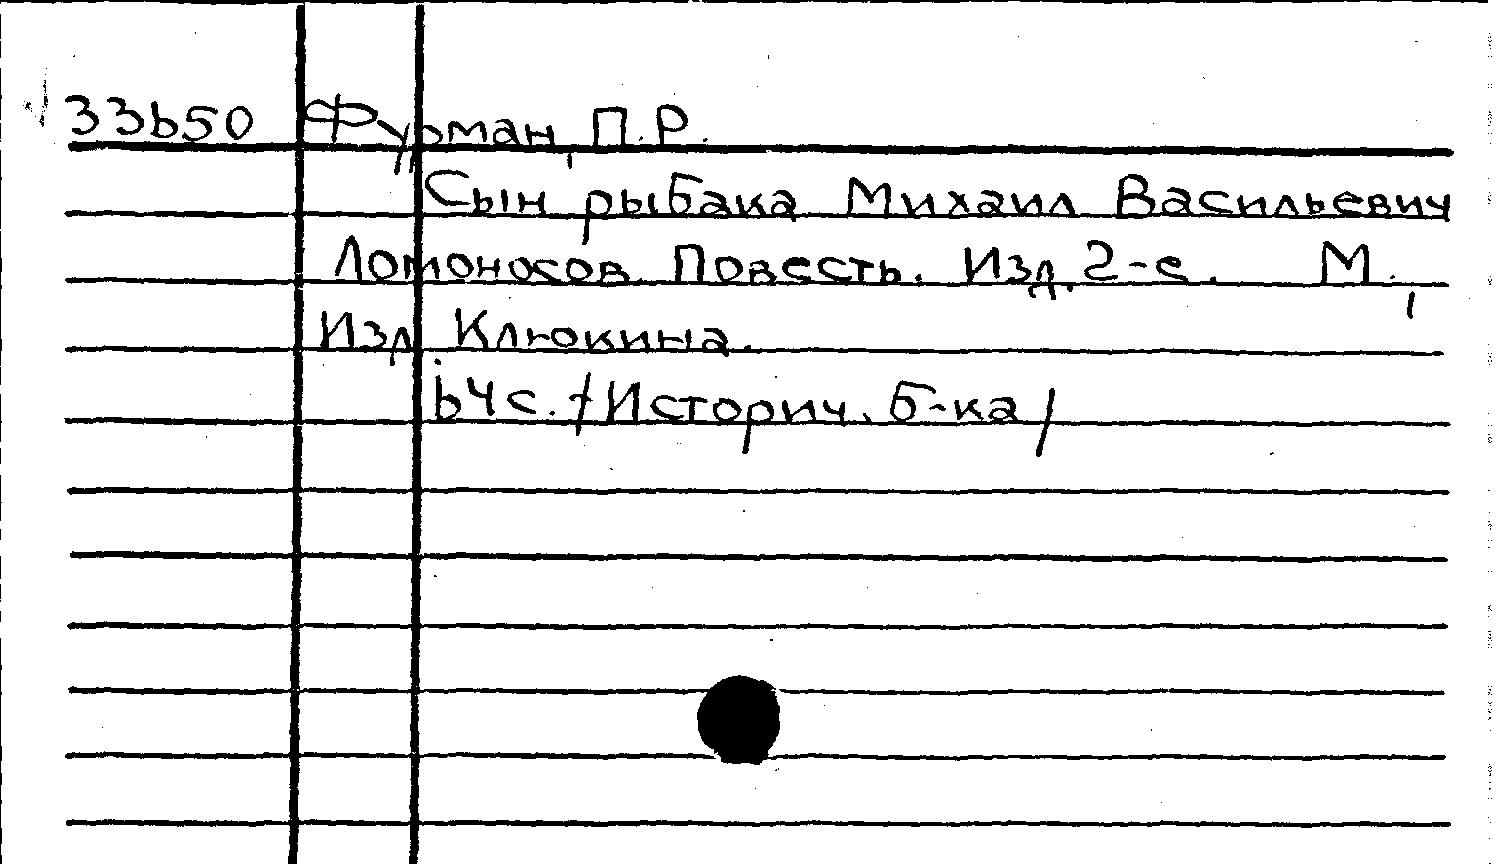 33650 Фурман, П.Р.
Сын рыбака Михаил Васильевич
Ломоносов. Повесть. Изд. 2-е. М.,
Изд. Клюкина.
64с. /Историч. б-ка/